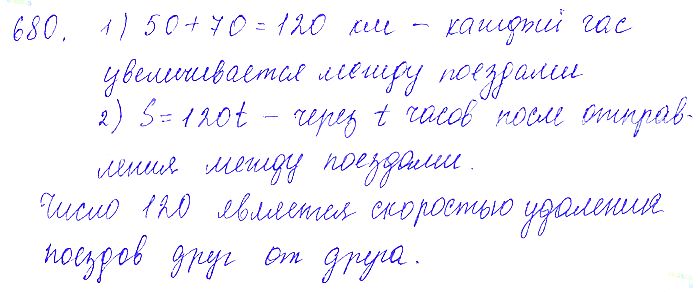 680. 1) 50+70=120 км – каждый час
увеличивается между поездами
2) S=120t – через t часов после отправ-
ления между поездами.
Число 120 является скоростью удаления
поездов друг от друга.